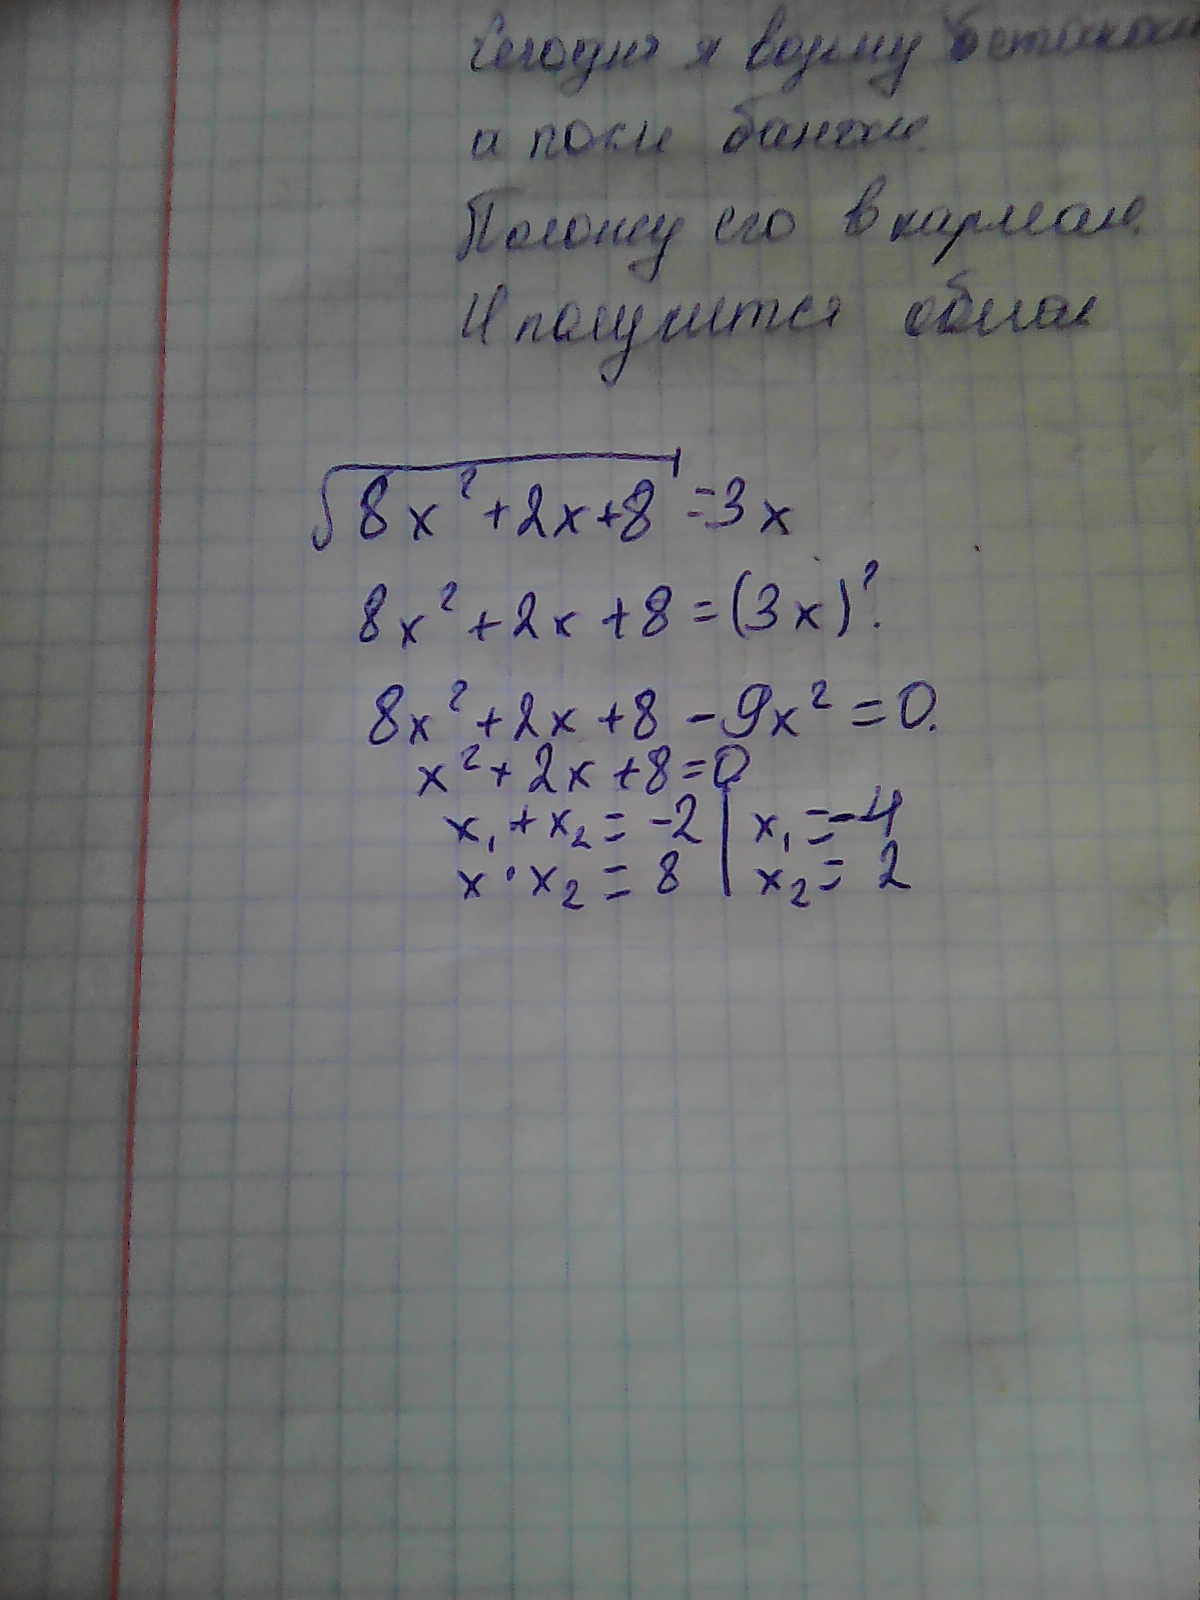 Сегодня я возьму
а
Положу его в карман.
И получится обман
√8x²+2x+8 =3x
8x²+2x+8=(3x)².
8x²+2x+8-9x²=0.
x²+2x+8=0
x₁+x₂=-2 | x₁=-4
x·x₂=8 | x₂=2